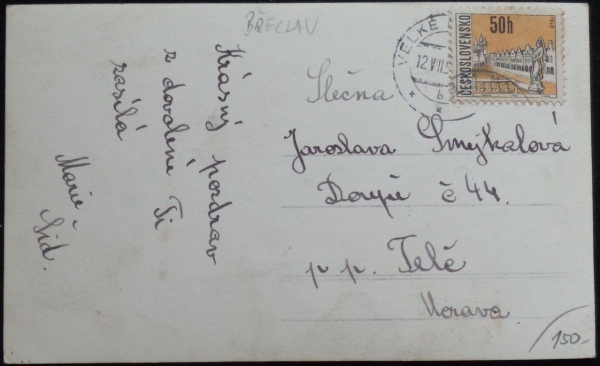 BŘECLAV
Krásný pozdrav
z dovolené Ti
zasílá
Marie
VELKÉ
12.VII.
6
50h
ČESKOSLOVENSKO
TELČ
Slečna
Jaroslava Smýkalová
č 44.
p. p. Telč
Morava
150-